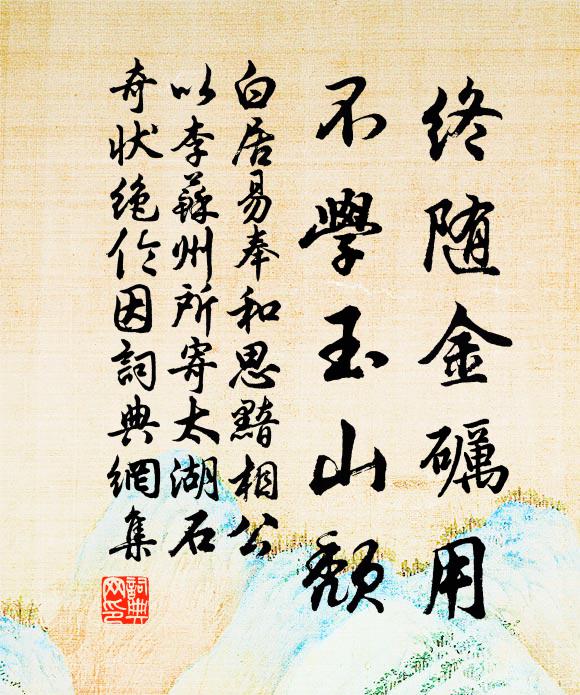 终随金砺用
不學玉山颓
白居易奉和思黯相公
以李蘇州所寄太湖石
奇状绝伦因詞典網集
詞典
网印